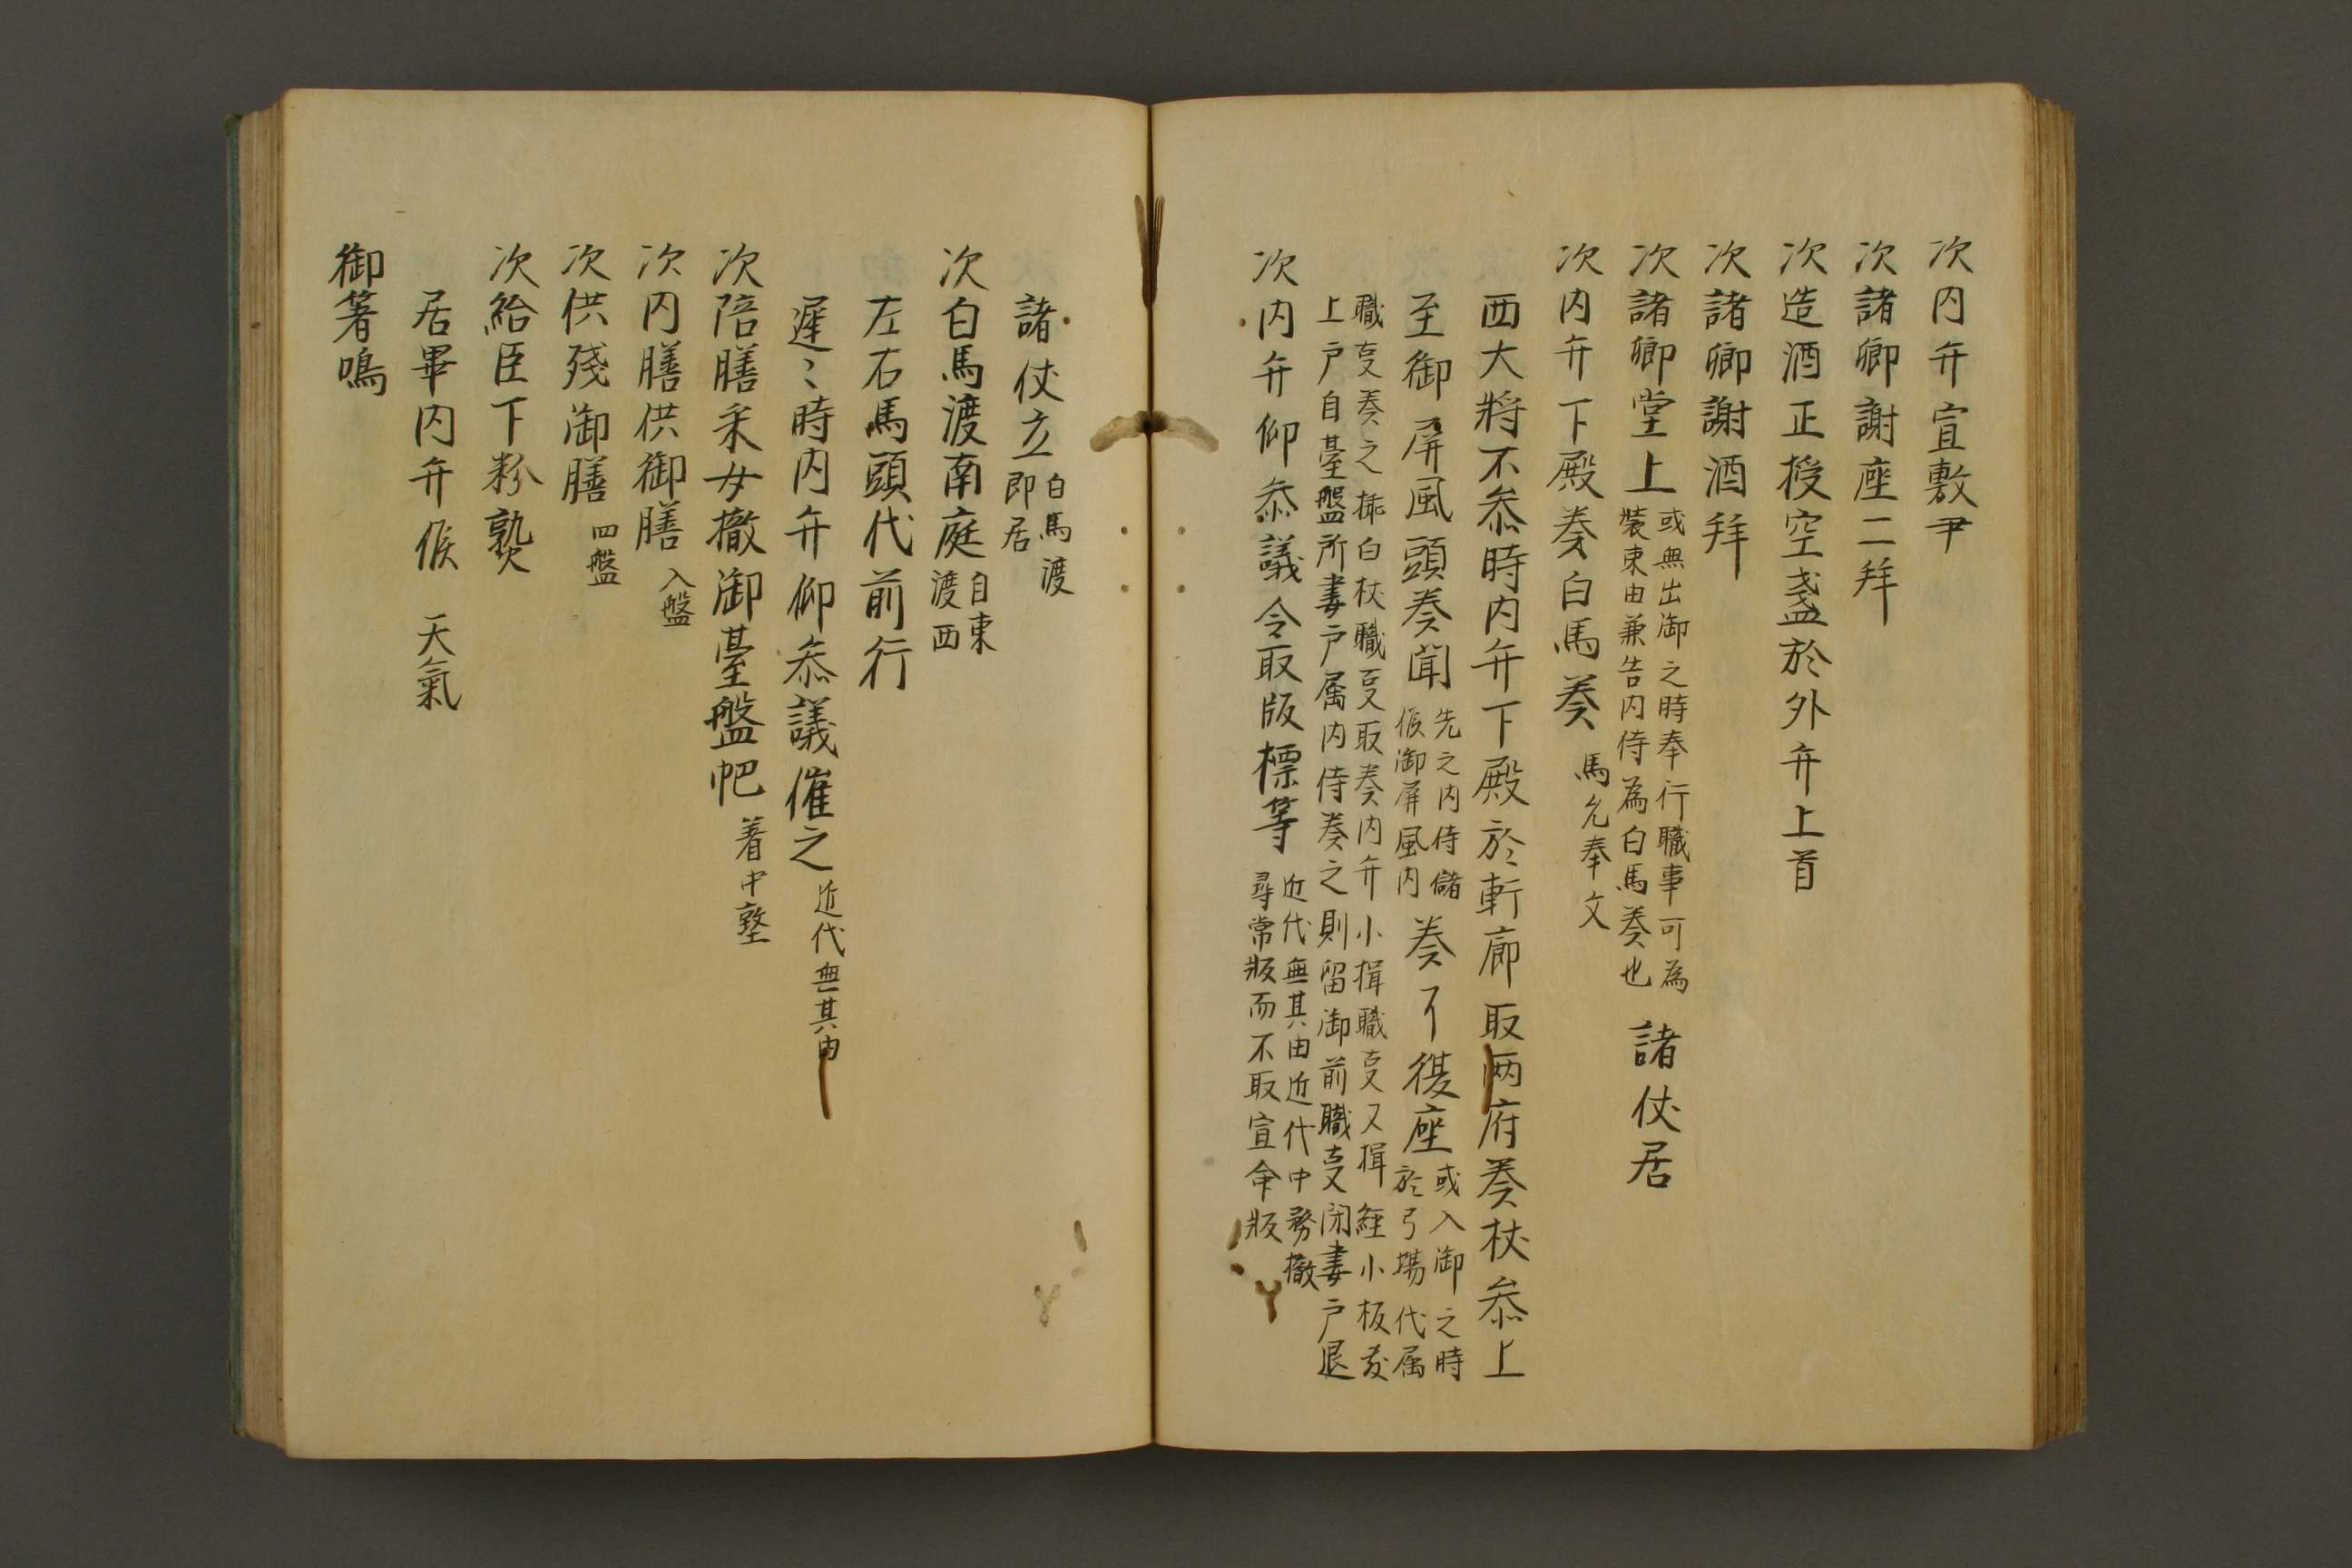 次内弁宣敷尹
次諸卿謝座二拜
次造酒正授空盞於外弁上首
次諸卿謝酒拜
次諸卿堂上
或無出御之時奉行職事可為
裝束由兼告内侍為白馬奏也
諸仗居
次内弁下殿奏白馬奏
馬允奉文
两大將不參時内弁下殿於軒廊取两府奏杖參上
至御屏風頭奏聞
先之内侍儲
候御屏風内
奏了復座
或入御之時
於弓場代属
職叓奏之揷白杖職叓取奏内弁小揖職叓又揖經小板敷
上戸自臺盤所妻戸属内侍奏之則留御前職叓閇妻戸退
次内弁仰參議令取版標等
近代無其由近代中務撤
尋常版而不取宣命版
諸仗立
白馬渡
即居
次白馬渡南庭
自東
渡西
左右馬頭代前行
遲〻時内弁仰參議催之
近代無其由
次陪膳采女撤御臺盤帊
着中墪
次内膳供御膳
入盤
次供殘御膳
四盤
次給臣下粉熟
居畢内弁候　天氣
御箸鳴